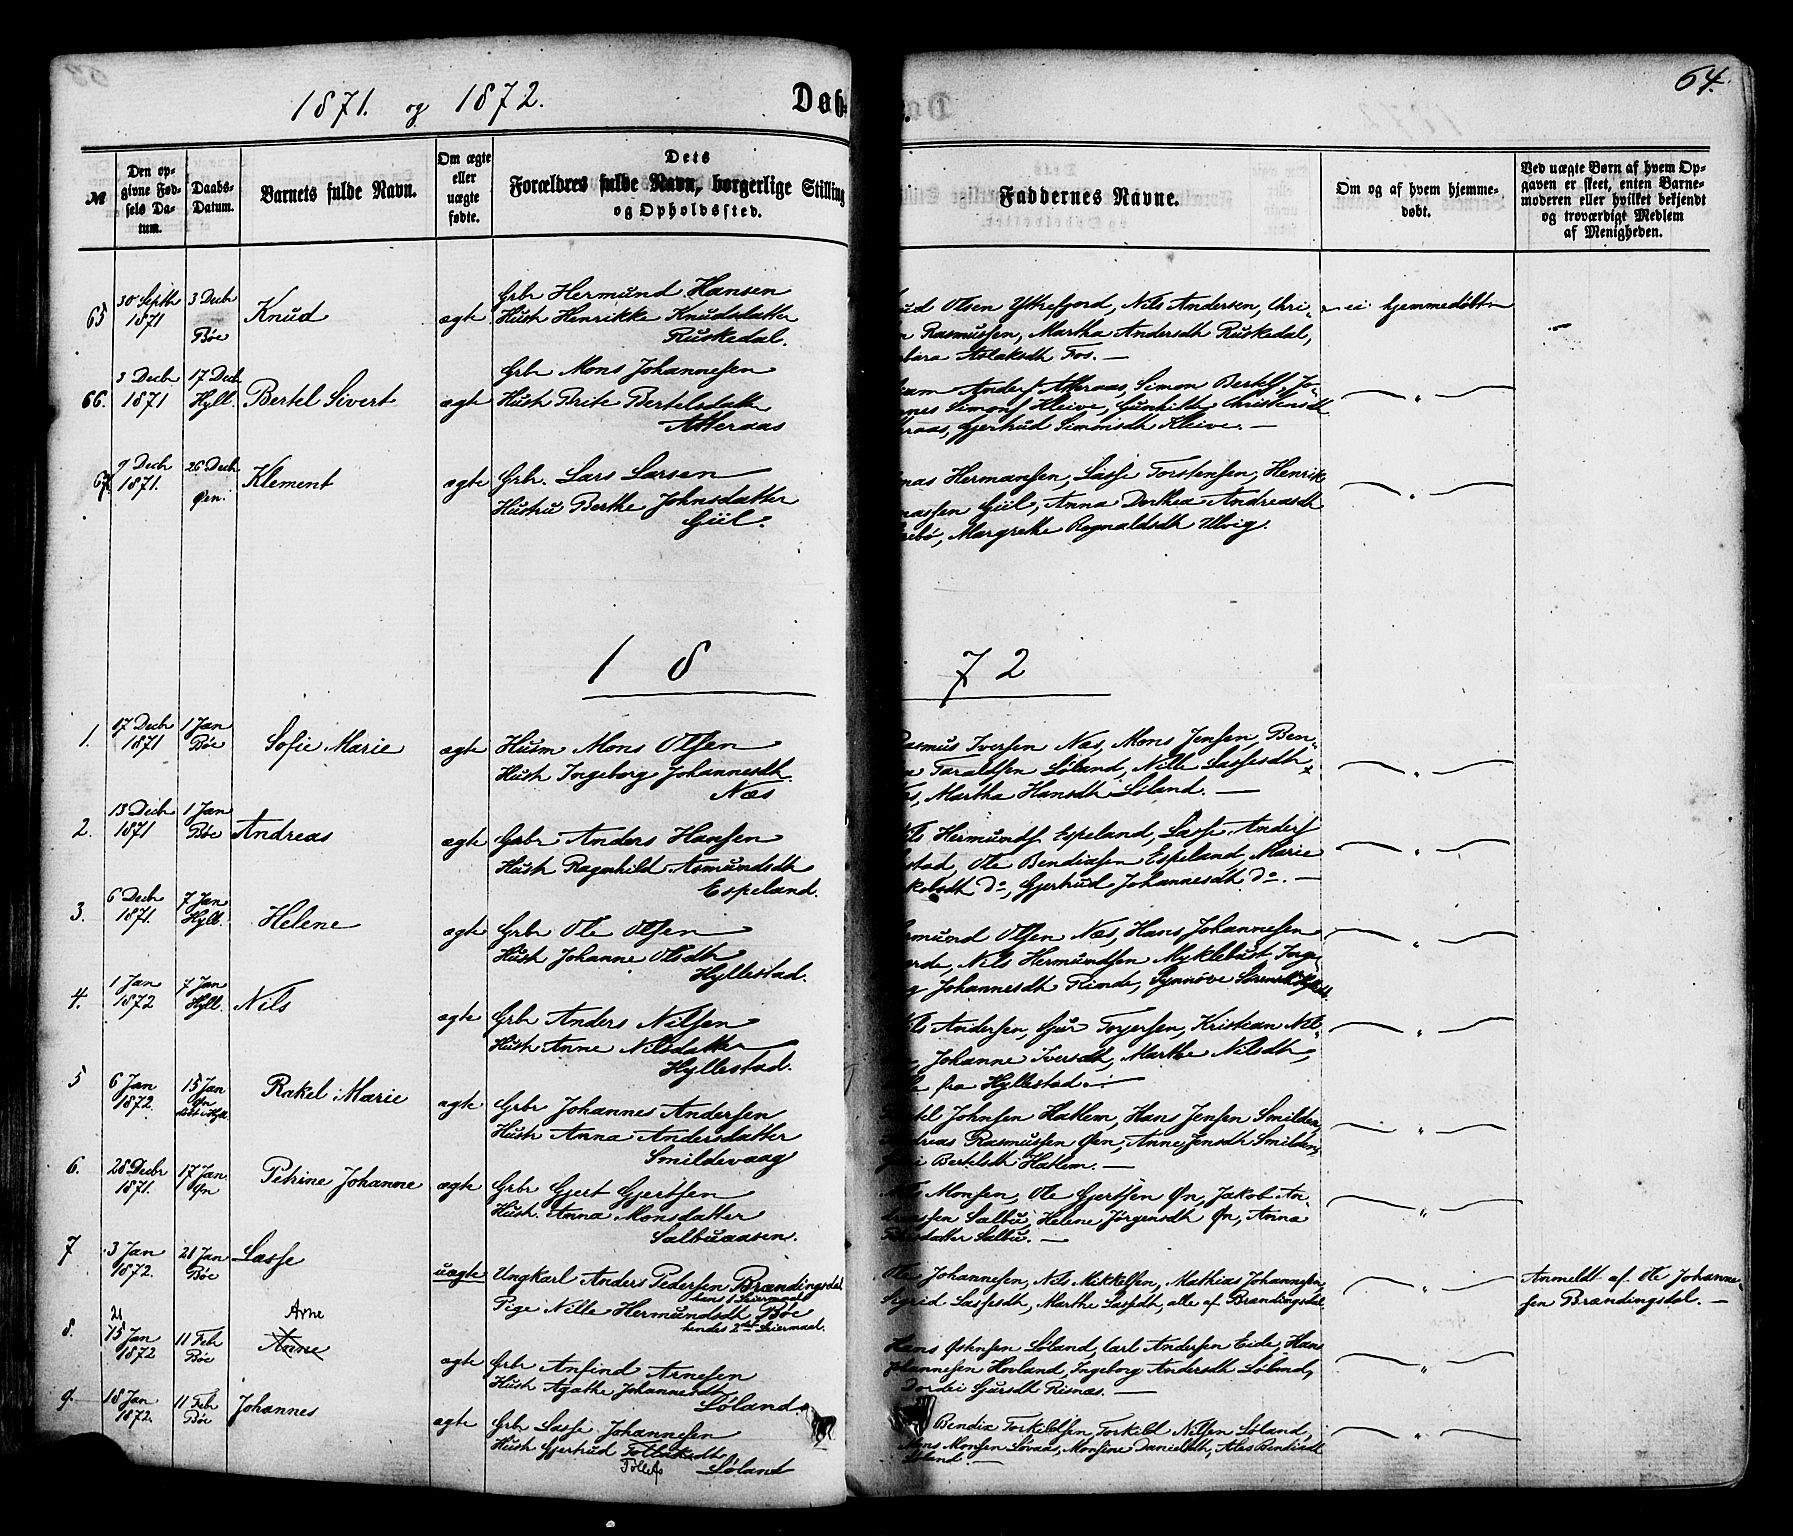 1871. og 1872. Dob- 64.
№
Den opgivne Fødsels Datum.
Daabs-Datum.
Barnets fulde Navn.
Om ægte eller uægte fødte.
Dets Forældres fulde Navn, borgerlige Stilling og Opholdssted.
Faddernes Navne.
Om og af hvem hjemmedøbt.
Ved uægte Børn af hvem Opgaven er skeet, enten Barnemoderen eller hvilket bekjendt og troværdigt Medlem af Menigheden.
65 30 Septbr 1871 3 Decbr Bøe Knud ægte Grbr Hermund Hansen
Hust Henrikke Knudsdatter
Ruskedal.
Olsen Ytrefjord, Nils Andersen, Chri-
Rasmussen, Martha Andersdt Ruskedal,
Aslaksdt Fos. —
ei hjemmedøbt
66. 3 Decbr 1871 17 Decb Hyll. Bertel Sivert ægte Grbr Mons Johannessen
Hust Brite Bertelsdatter
Atteraas
Anders Atteraas, Simon Bertels, Jo-
nes Simons Kleive, Gunhilde Christensdt
raas, Gjertrud Simonsdt Kleive. —
"
67 9 Decbr 1871. 26 Decbr Øen. Klement ægte Grbr. Lars Larsen
Hustru Berthe Johnsdatter
Giil.
Hermansen, Lasse Torstensen, Henrik
Giil, Anna Dorthea Andreasdt
Margrethe Regnaldsdt Ulvig.
"
1872
1. 17 Decbr 1871 1 Jan Bøe Sofie Marie ægte Husm Mons Olsen
Hust Ingeborg Johannesdt.
Næs
Rasmus Iversen Næs, Mons Jensen, Ben-
Taraldsen Løland, Nille Lassesdt
Martha Hansdt Løland. —
"
2. 13 Decbr 1871 1 Jan Bøe Andreas ægte Grbr Anders Hansen
Hust Ragnhild Asmundsdt
Espeland.
Hermunds Espeland, Lasse Anders
Ole Bendixsen Espeland, Marie
Do, Gjertrud Johannesdt Do. —
"
3. 6 Decbr 1871. 7 Jan Hyll. Helene ægte Grbr Ole Olsen
Hust Johanne Olsdt
Hyllestad.
Olsen Næs, Hans Johannesen
Nils Hermundsen Myklebust, Inge-
Johannesdt Rinde, Synnøve
"
4. 1 Jan 1872 7 Jan Hyll. Nils ægte Grbr Anders Nilsen
Hust Anne Nilsdatter
Hyllestad.
Andersen, Gur Torgersen, Kristian Nil-
Johanne Iversdt, Marthe Nilsdt,
fra Hyllestad.
"
5 6 Jan 1872. 15 Jan Øn Rakel Marie ægte Grbr Johannes Andersen
Hust Anna Andersdatter
Smildevaag
Johnsen Hatlem, Hans Jensen Smilden,
Rasmussen Øen, Anne Jensdt Smilden,
Bertelsdt Hatlem. —
"
6. 28 Decbr 1871. 17 Jan Øn Petrine Johanne ægte Grbr Gjert Gjertsen
Hust. Anna Monsdatter
Salbuaasen.
Monsen, Ole Gjertsen Øn, Jakob An-
Salbu, Helene Jørgensdt Øn, Anna
Salbu. —
"
7 3 Jan 1872. 21 Jan Bøe Lasse uægte Ungkarl Anders Pedersen Brændingsdal
hans 1 Leiermaal
Pige Nille Hermundsdt Bøe
hendes 2det Leiermaal.
Ole Johannesen, Nils Mikkelsen, Mathias Johannesen,
Sigrid Lassesdt, Marthe Lassdt, alle af Brændingsdal
"
Anmeldt af Ole Johanne-
sen Brændingsdal. —
8. 21 15 Jan 1872 11 Febr Bøe Arne Anne ægte Grbr Anfind Arnesen
Hust Agathe Johannesdt
Løland.
Hans Løland, Carl Andersen Eide, Hans
Johannesen Hovland, Ingeborg Andersdt Løland,
Dordei Gjursdt Risnæs. —
"
9. 18 Jan 1872. 11 Febr Bøe Johannes ægte Grbr Lasse Johannesen
Hust Gjertrud
Løland
Bendix Torkildsen, Torkild Nilsen Løland,
Mons Monsen Løvaas, Monsine Danielsdt, Ales Bendixdt
Løland. —
"